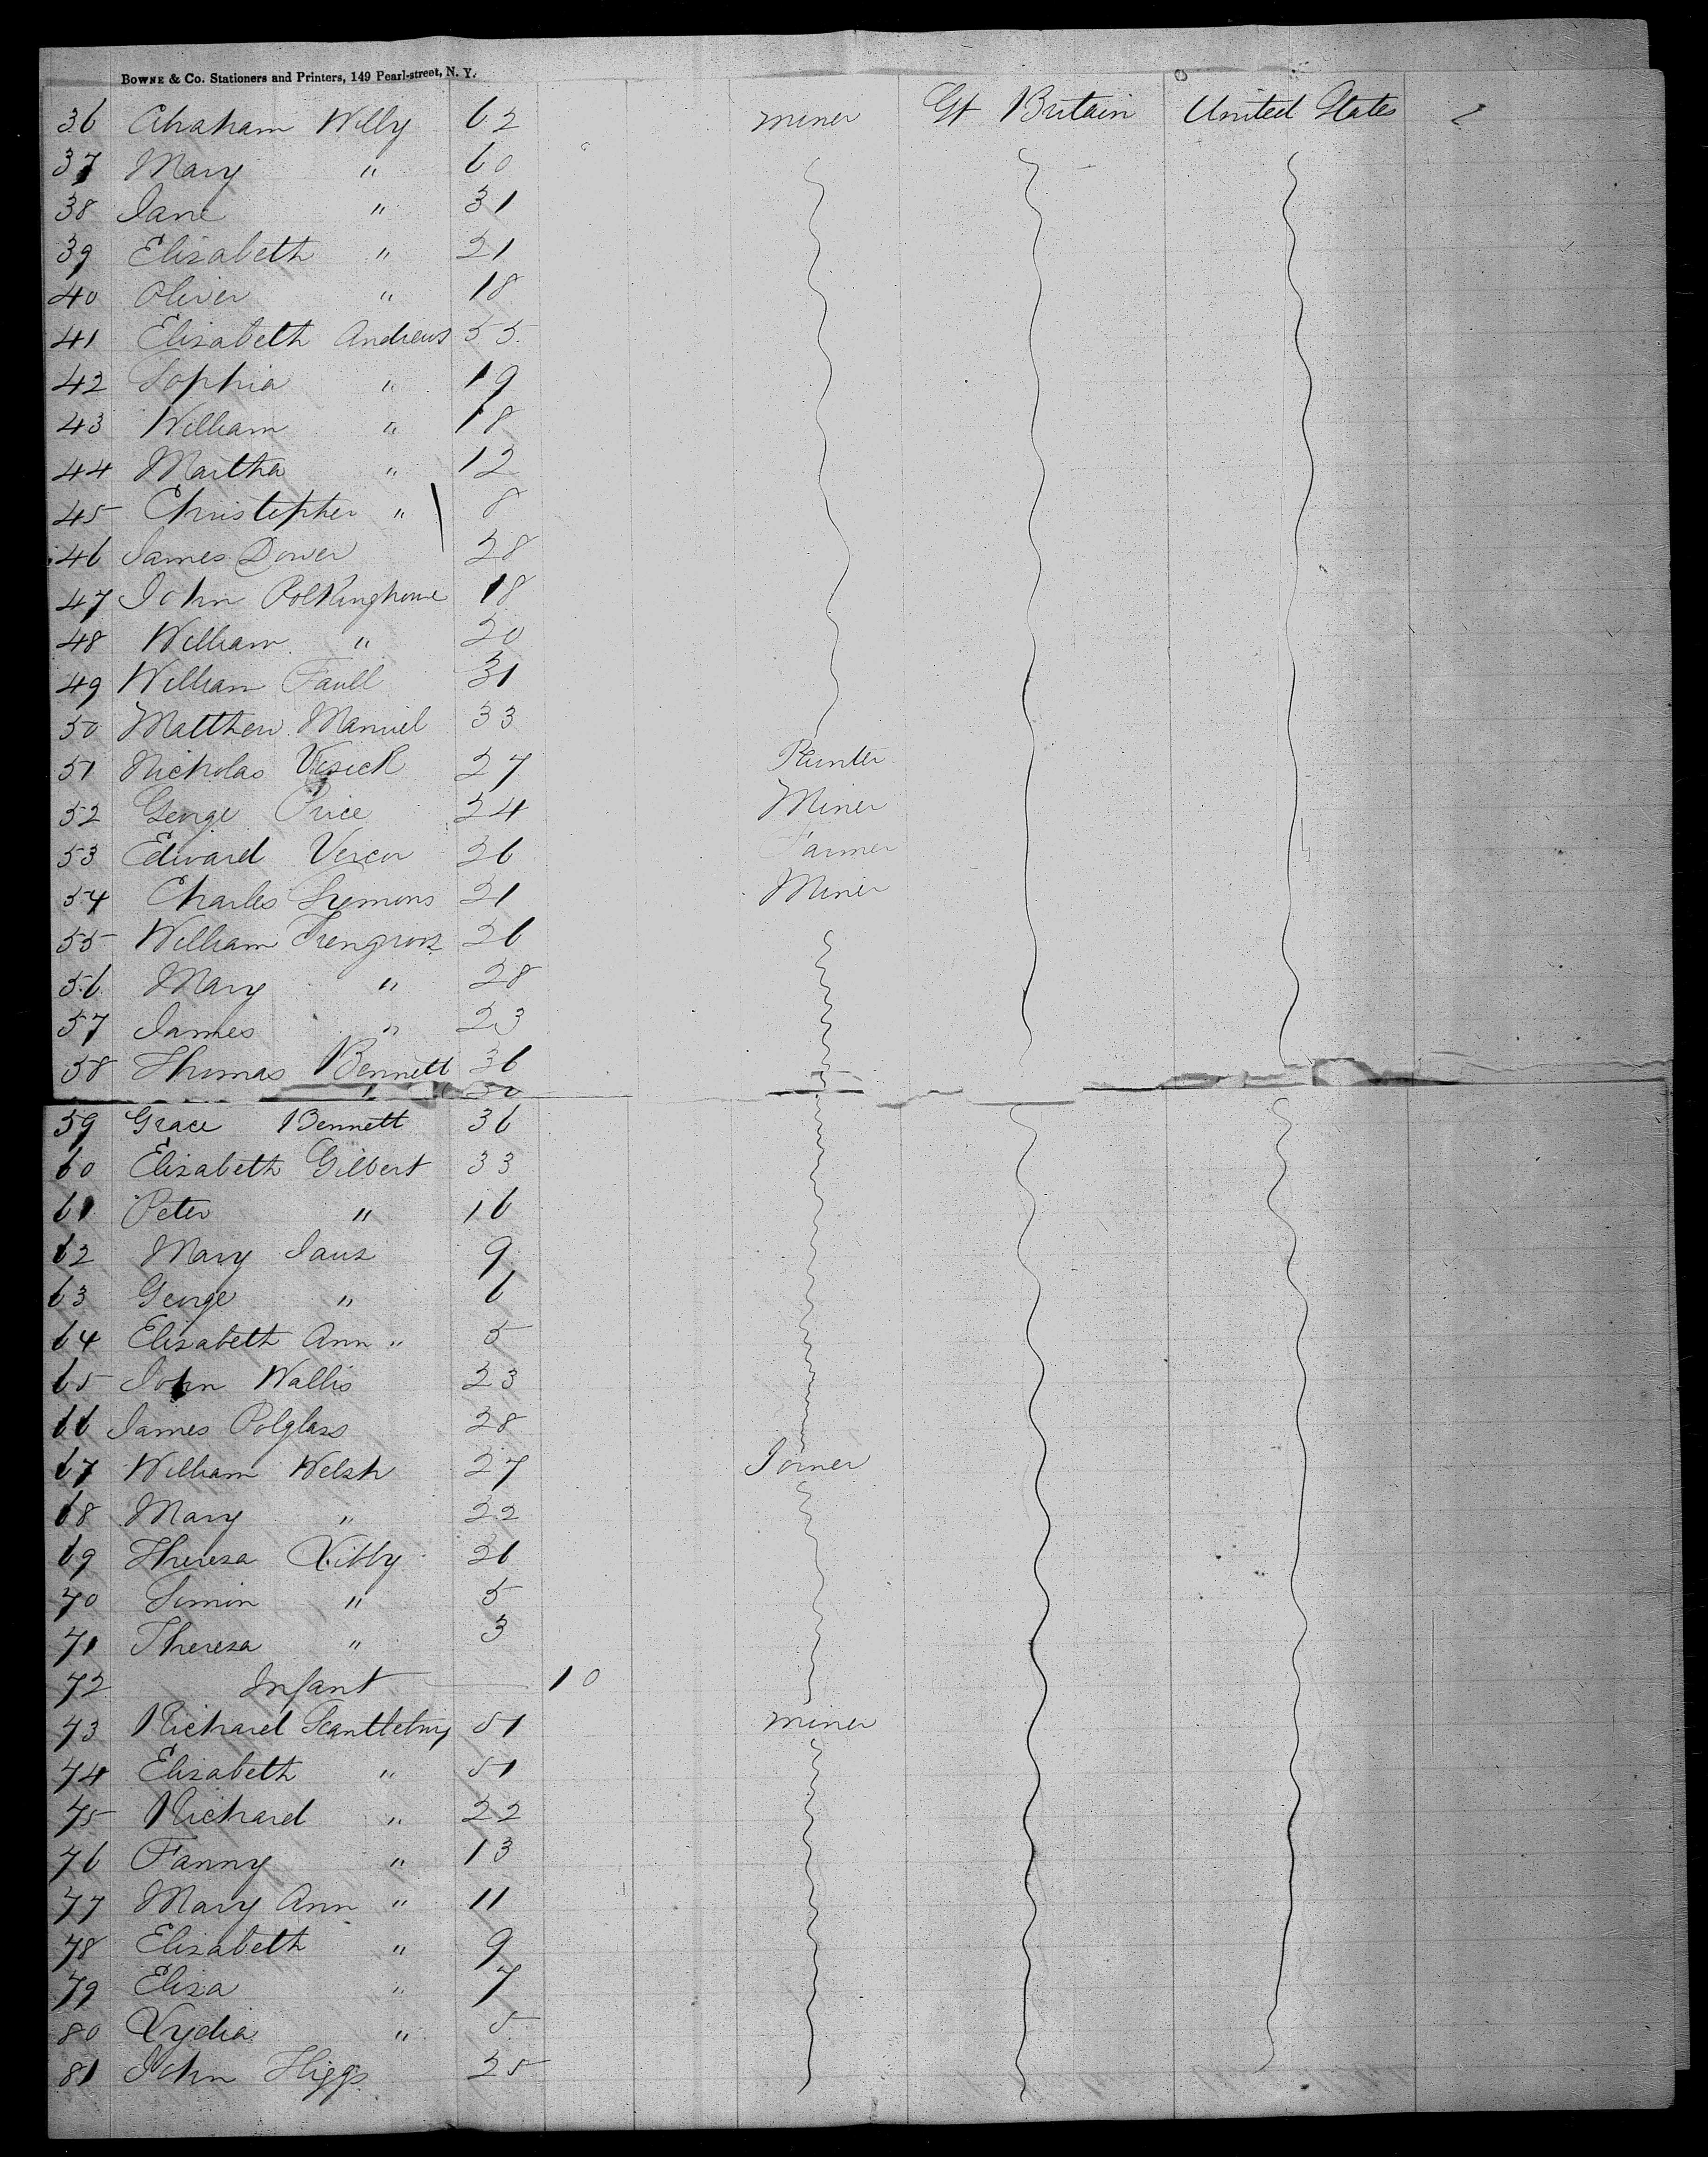 BOWNE & Co. Stationers and Printers, 149 Pearl-street, N. Y.
36 Abraham Willy 62 miner Gt Britain United States
37 Mary " 60
38 Jane " 31
39 Elizabeth " 21
40 Oliver " 18
41 Elizabeth Andrews 55
42 Sophia " 19
43 William " 18
44 Martha " 12
45 Christopher " 8
46 James Dower 28
47 John Polkinghorne 18
48 William " 20
49 William Faull 31
50 Matthew Manuel 33
51 Nicholas 27
52 George Price 24 Miner
53 Edward Vercor 26 Farmer
54 Charles Symons 21 Miner
55 William 26
56 Mary " 28
57 James " 23
58 Thomas Bennett 36
59 Grace Bennett 36
60 Elizabeth Gilbert 33
61 Peter " 16
62 Mary 9
63 George " 6
64 Elizabeth Ann " 5
65 John Wallis 23
66 James Polglass 28
67 William Welsh 27 Joiner
68 Mary " 22
69 Theresa Libby 26
70 Simon " 5
71 Theresa " 3
72 Infant 10
73 Richard Scantlebury 51 miner
74 Elizabeth " 51
75 Richard " 22
76 Fanny " 13
77 Mary Ann " 11
78 Elizabeth " 9
79 Eliza " 7
80 Lydia " 5
81 John Higgs 25